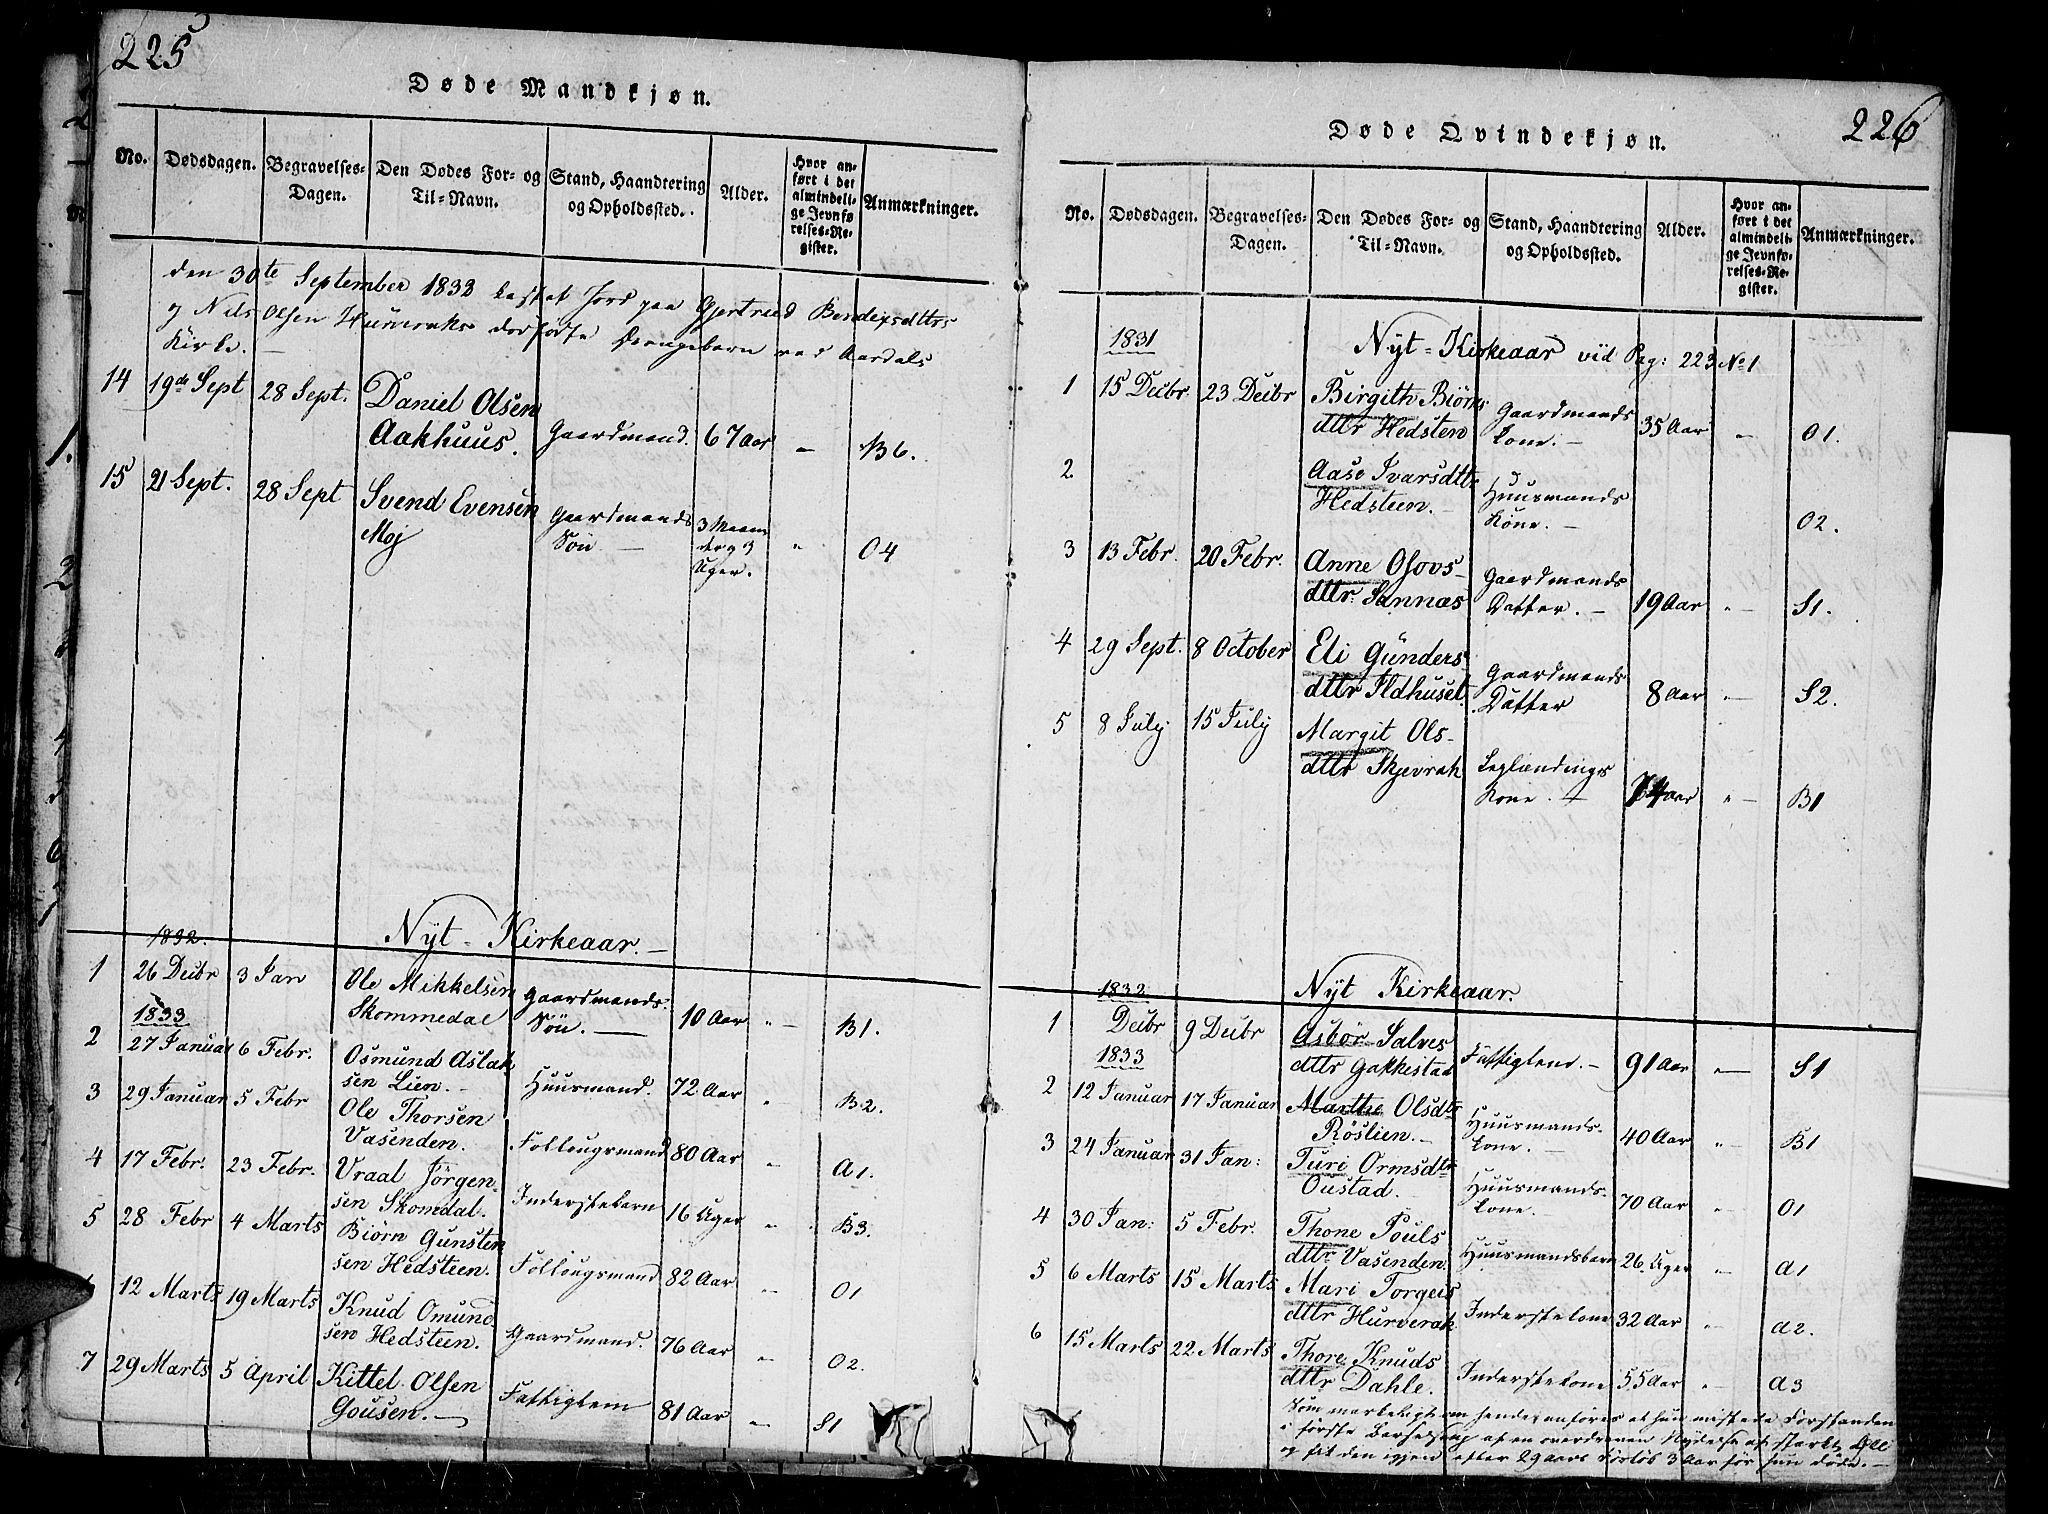 225
Døde Mandkjøn.
No. Dødsdagen. Begravelses-Dagen. Den Dødes For- og Til-Navn. Stand, Haandtering og Opholdssted. Alder. Hvor anført i det almindelige Jevnførelses-Register. Anmærkninger.
den 30te September 1832 kastet Jord paa Gjertrud Bendixsdttrs
og Nils Olsen Hurveraks dødfødte Drengebarn ved Aardals
Kirke. —
14 19de Sept 28 Sept. Daniel Olsen Gaardmand. 67 Aar — B6.
Aakhuus.
15 21 Sept. 28 Sept Svend Evensen Gaardmands 3 Maane
Moj Søn — der og 3 " O4
Uger.
1832. Nÿt-Kirkeaar. —
1 26 Decbr 3 Jan Ole Mikkelsen Gaardmands-
Skommedal Søn. — 10 Aar " — B1.
1833
2 27 Januar 6 Febr. Osmund Aslak
sen Lien. — Huusmand. 72 Aar " B2.
3 29 Januar 5 Febr Ole Thorsen
Vasenden. Follougsmand 80 Aar " A1.
4 17 Febr. 23 Febr. Vraal Jörgen-
sen Skomdal. Inderstebarn 16 Uger " B3.
5 28 Febr 4 Marts Biørn Gunsten
sen Hedsteen. Follougsmand 82 Aar " O1
12 Marts 19 Marts Knud Omund
sen Hedsteen. Gaardmand. 76 Aar " O2.
7 29 Marts 5 April Kittel Olsen
Gousen. — Fattiglem 81 Aar " S1
226
Døde Qvindekjøn.
No. Dødsdagen. Begravelses-Dagen. Den Dødes For- og Til-Navn. Stand, Haandtering og Opholdssted. Alder. Hvor anført i det almindelige Jevnførelses-Register. Anmærkninger.
1831 Nÿt-Kirkeaar vid Pag: 223 No 1
1 15 Decbr. 23 Decbr Birgith Biörns Gaardmands
dttr Hedsten Kone. — 35 Aar " O1.
2 Aase Ivarsdttr Huusmands
Hedsteen. — Kone. — O2.
3 13 Febr. 20 Febr. Anne Osovs- Gaardmands
dttr: Sannæs Datter. — 19 Aar " — S1.
4 29 Sept. 8 October Eli Günders- Gaardmands
dttr Ildhuset. Datter 8 Aar " — S2.
5 8 July 15 July Margit Ols-
dttr Skjevrak Leglændings
Kone. — 74 Aar " — B1
1832 Nÿt Kirkeaar.
1 Decbr 9 Decbr Asbör Salves
dttr Gakkestad Fattiglem. — 91 Aar " — S1
1833
2 12 Januar 17 Januar Marthe Olsdtr Huusmands-
Röslien. — Kone. — 40 Aar " B1
3 24 Januar 31 Jan: Turi Ormsdtr Huusmands-
Oustad. Kone. — 70 Aar " O1
4 30 Jan: 5 Febr. Thone Pouls
dttr Vasenden. Huusmandsbarn 26 Uger " A1
5 6 Marts 15 Marts Mari Torgeis
dttr Hurverak Inderstekone 32 Aar " A2.
6 15 Marts 22 Marts Thore Knuds
dttr Dahle. Inderstekone 55 Aar " A3
Som mærkeligt om hende anføres at hun mistede Forstanden
i første Barselseng af en overdreven Nydelse af stærkt Øll
og fik den igjen efter 29 aars Forløb 3 Aar før hun døde. —